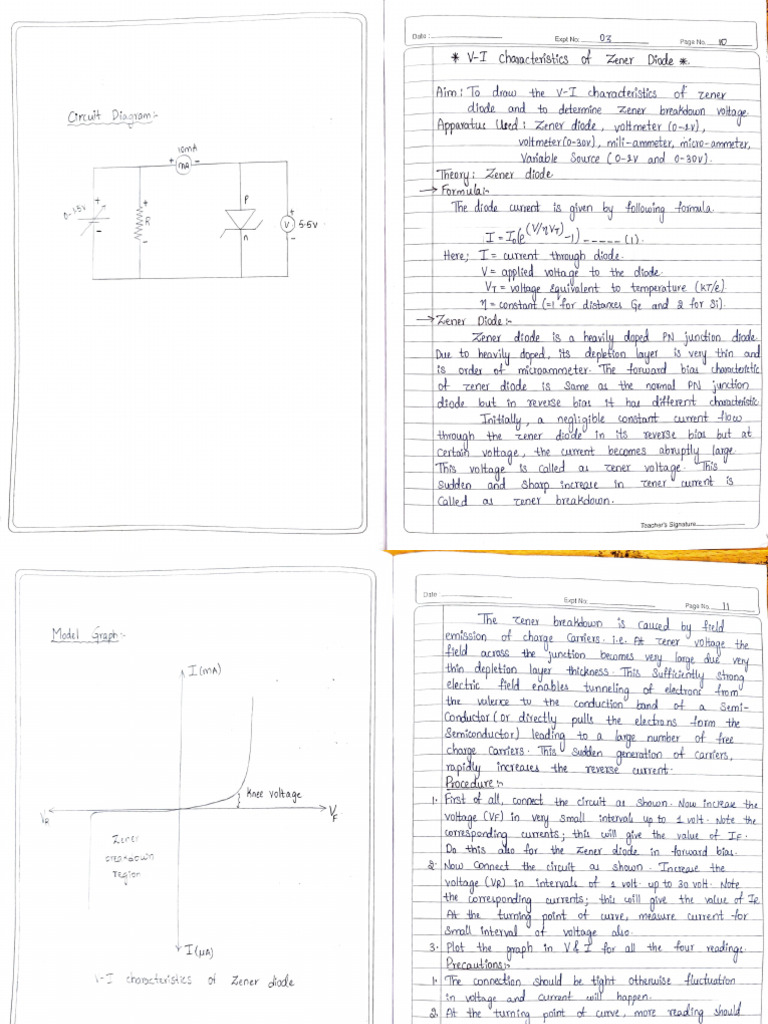 Circuit Diagram:-
10mA
+ mA -
0-15v
+
-
+
R
-
P
n
+
V
-
5.5V
Date :
Expt No: 03
Page No. 10
* V-I Characteristics of Zener Diode *.
Aim: To draw the V-I characteristics of zener
diode and to determine Zener breakdown voltage.
Apparatus Used: Zener diode, voltmeter (0-1v),
voltmeter(0-30v), mili-ammeter, micro-ammeter,
Variable Source (0-1v and 0-30v).
Theory: Zener diode
→ Formula:-
The diode current is given by following formula.
I = I₀(e^(V/ηV_T) -1) ----- (1).
Here; I = current through diode.
V = applied voltage to the diode.
V_T = voltage equivalent to temperature (KT/e).
η = constant (=1 for distances Ge and 2 for Si).
→ Zener Diode:-
Zener diode is a heavily doped PN junction diode.
Due to heavily doped, its depletion layer is very thin and
is order of microammeter. The forward bias characteristic
of zener diode is same as the normal PN junction
diode but in reverse bias it has different characteristic.
Initially, a negligible constant current flow
through the zener diode in its reverse bias but at
certain voltage, the current becomes abruptly large.
This voltage is called as zener voltage. This
sudden and sharp increase in zener current is
called as zener breakdown.
Teacher's Signature
Model Graph:-
I(mA)
Knee voltage
V_R
V_F
Zener
breakdown
region
I(μA)
V-I characteristics of Zener diode
Date
Expt No.
Page No. 11
The zener breakdown is caused by field
emission of charge carriers. i.e. At zener voltage the
field across the junction becomes very large due very
thin depletion layer thickness. This sufficiently strong
electric field enables tunneling of electrons from
the valence to the conduction band of a Semi-
Conductor (or directly pulls the electrons form the
Semiconductor) leading to a large number of free
charge carriers. This sudden generation of carriers,
rapidly increases the reverse current.
Procedure:-
1. First of all, connect the circuit as shown. Now increase the
voltage (VF) in very small intervals up to 1 volt. Note the
corresponding currents; this will give the value of IF.
Do this also for the zener diode in forward bias.
2. Now connect the circuit as shown. Increase the
voltage (VR) in intervals of 1 volt up to 30 volt. Note
the corresponding currents; this will give the value of IR.
At the turning point of curve, measure current for
small interval of voltage also.
3. Plot the graph in V & I for all the four readings.
Precautions:-
1. The connection should be tight otherwise fluctuation
in voltage and current will happen.
2. At the turning point of curve, more reading should